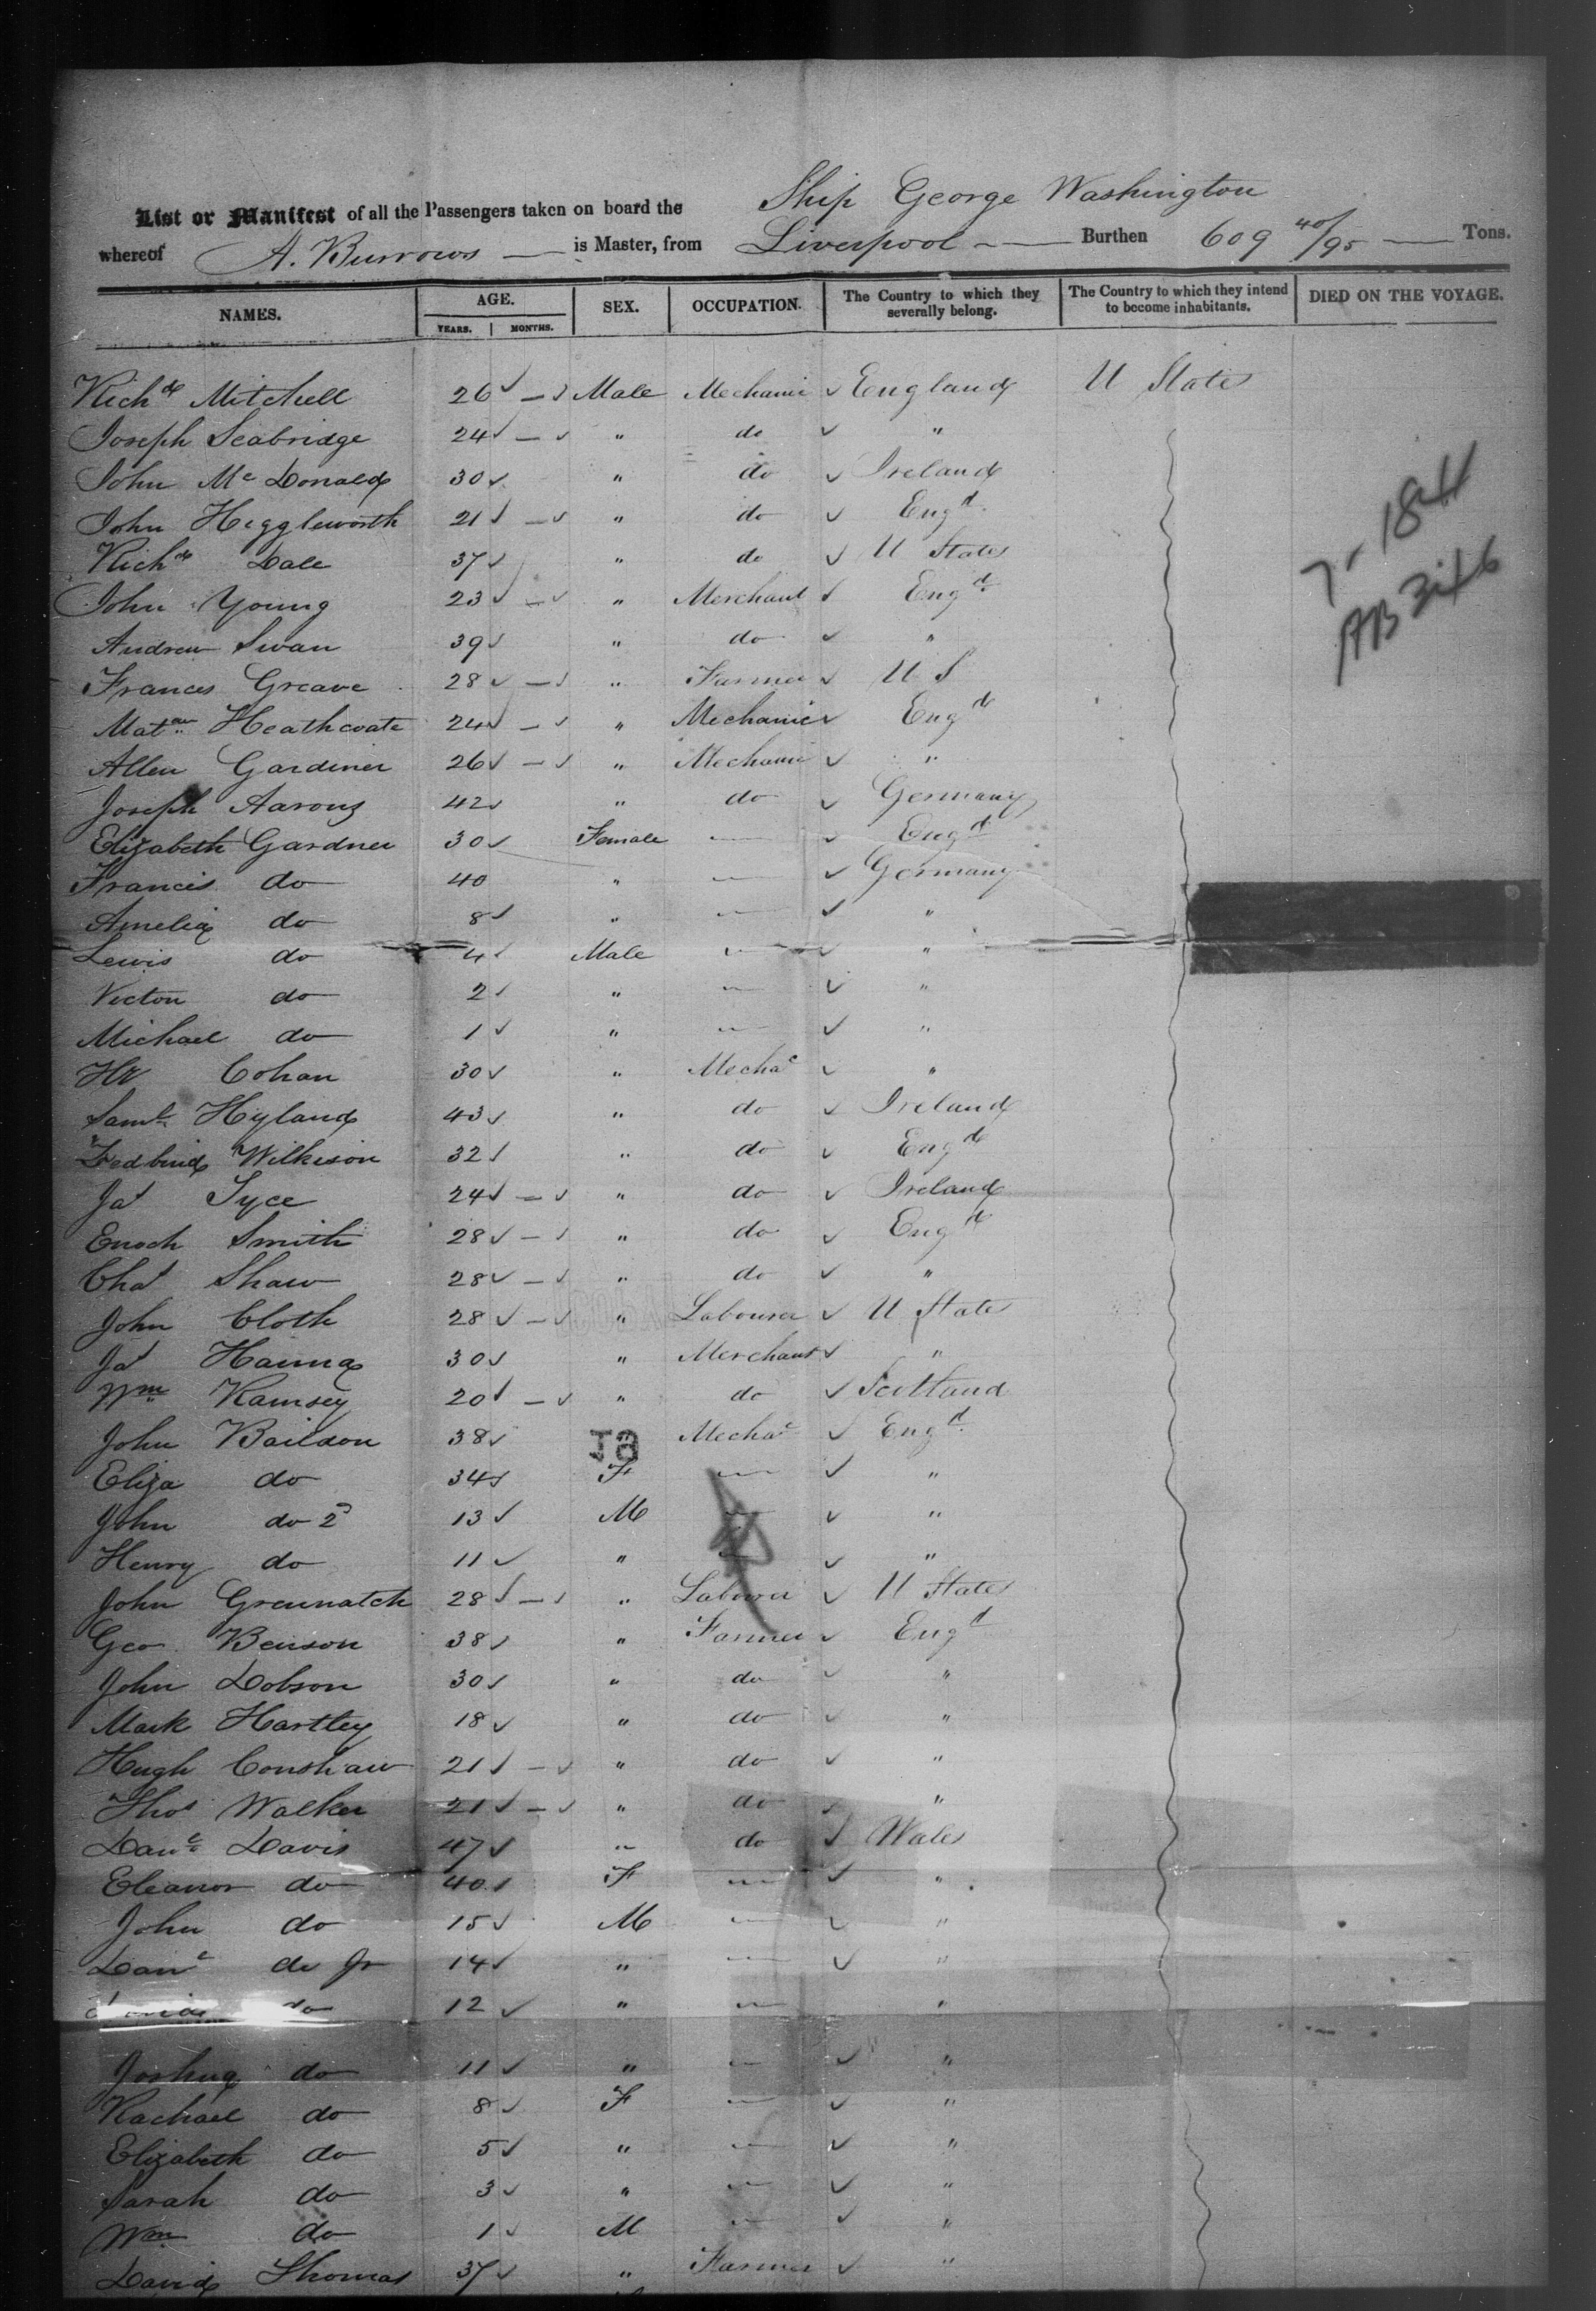 Ship George Washington
List or Manifest of all the Passengers taken on board the
whereof A. Burrows is Master, from Liverpool Burthen 609 40/95 Tons.
NAMES. AGE. SEX. OCCUPATION. The Country to which they severally belong. The Country to which they intend to become inhabitants. DIED ON THE VOYAGE.
YEARS. MONTHS.
Richd Mitchell 26 — Male Mechanic England U States
Joseph Seabridge 24 — " do "
John Mc Donald 30 " do Ireland
John Higgleworth 21 — " do Engd
Richd Dale 37 " do U States
7-1844
AB 3246
John Young 23 — " Merchant Engd
Andrew Swan 39 " do "
Frances Greave 28 — " Farmer U S
Heathcoate 24 — " Mechanic Engd
Allen Gardiner 26 — " Mechanic "
Joseph Aarons 42 " do Germany
Elizabeth Gardner 30 Female — Engd
Francis do 40 " — Germany
Amelia do 8 " — "
Lewis do 4 Male — "
Victon do 2 " — "
Michael do 1 " — "
Cohan 30 " Mechac "
Saml Hyland 43 " do Ireland
Wilkison 32 " do Engd
Jas Tyce 24 — " do Ireland
Enoch Smith 28 — " do Engd
Chas Shaw 28 — " do "
John Cloth 28 — " Labourer U States
Jas 30 " Merchant "
Wm Ramsey 20 — " do Scotland
John Baildon 38 " Mechac Engd
Eliza do 34 F — "
John do 2d 13 M — "
Henry do 11 " — "
John Greenatch 28 — " Laborer U States
Geo Benson 38 " Farmer Engd
John Dobson 30 " do "
Mark Hartley 18 " do "
Hugh Conshaw 21 — " do "
Thos Walker 21 — " do "
Danl Davis 47 " do Wales
Eleanor do 40 F — "
John do 15 M — "
Danl do Jr 14 " — "
do 12 " — "
Joshua do 11 " — "
Rachael do 8 F — "
Elizabeth do 5 " — "
Sarah do 3 " — "
Wm do 1 M — "
David Thomas 37 " Farmer "